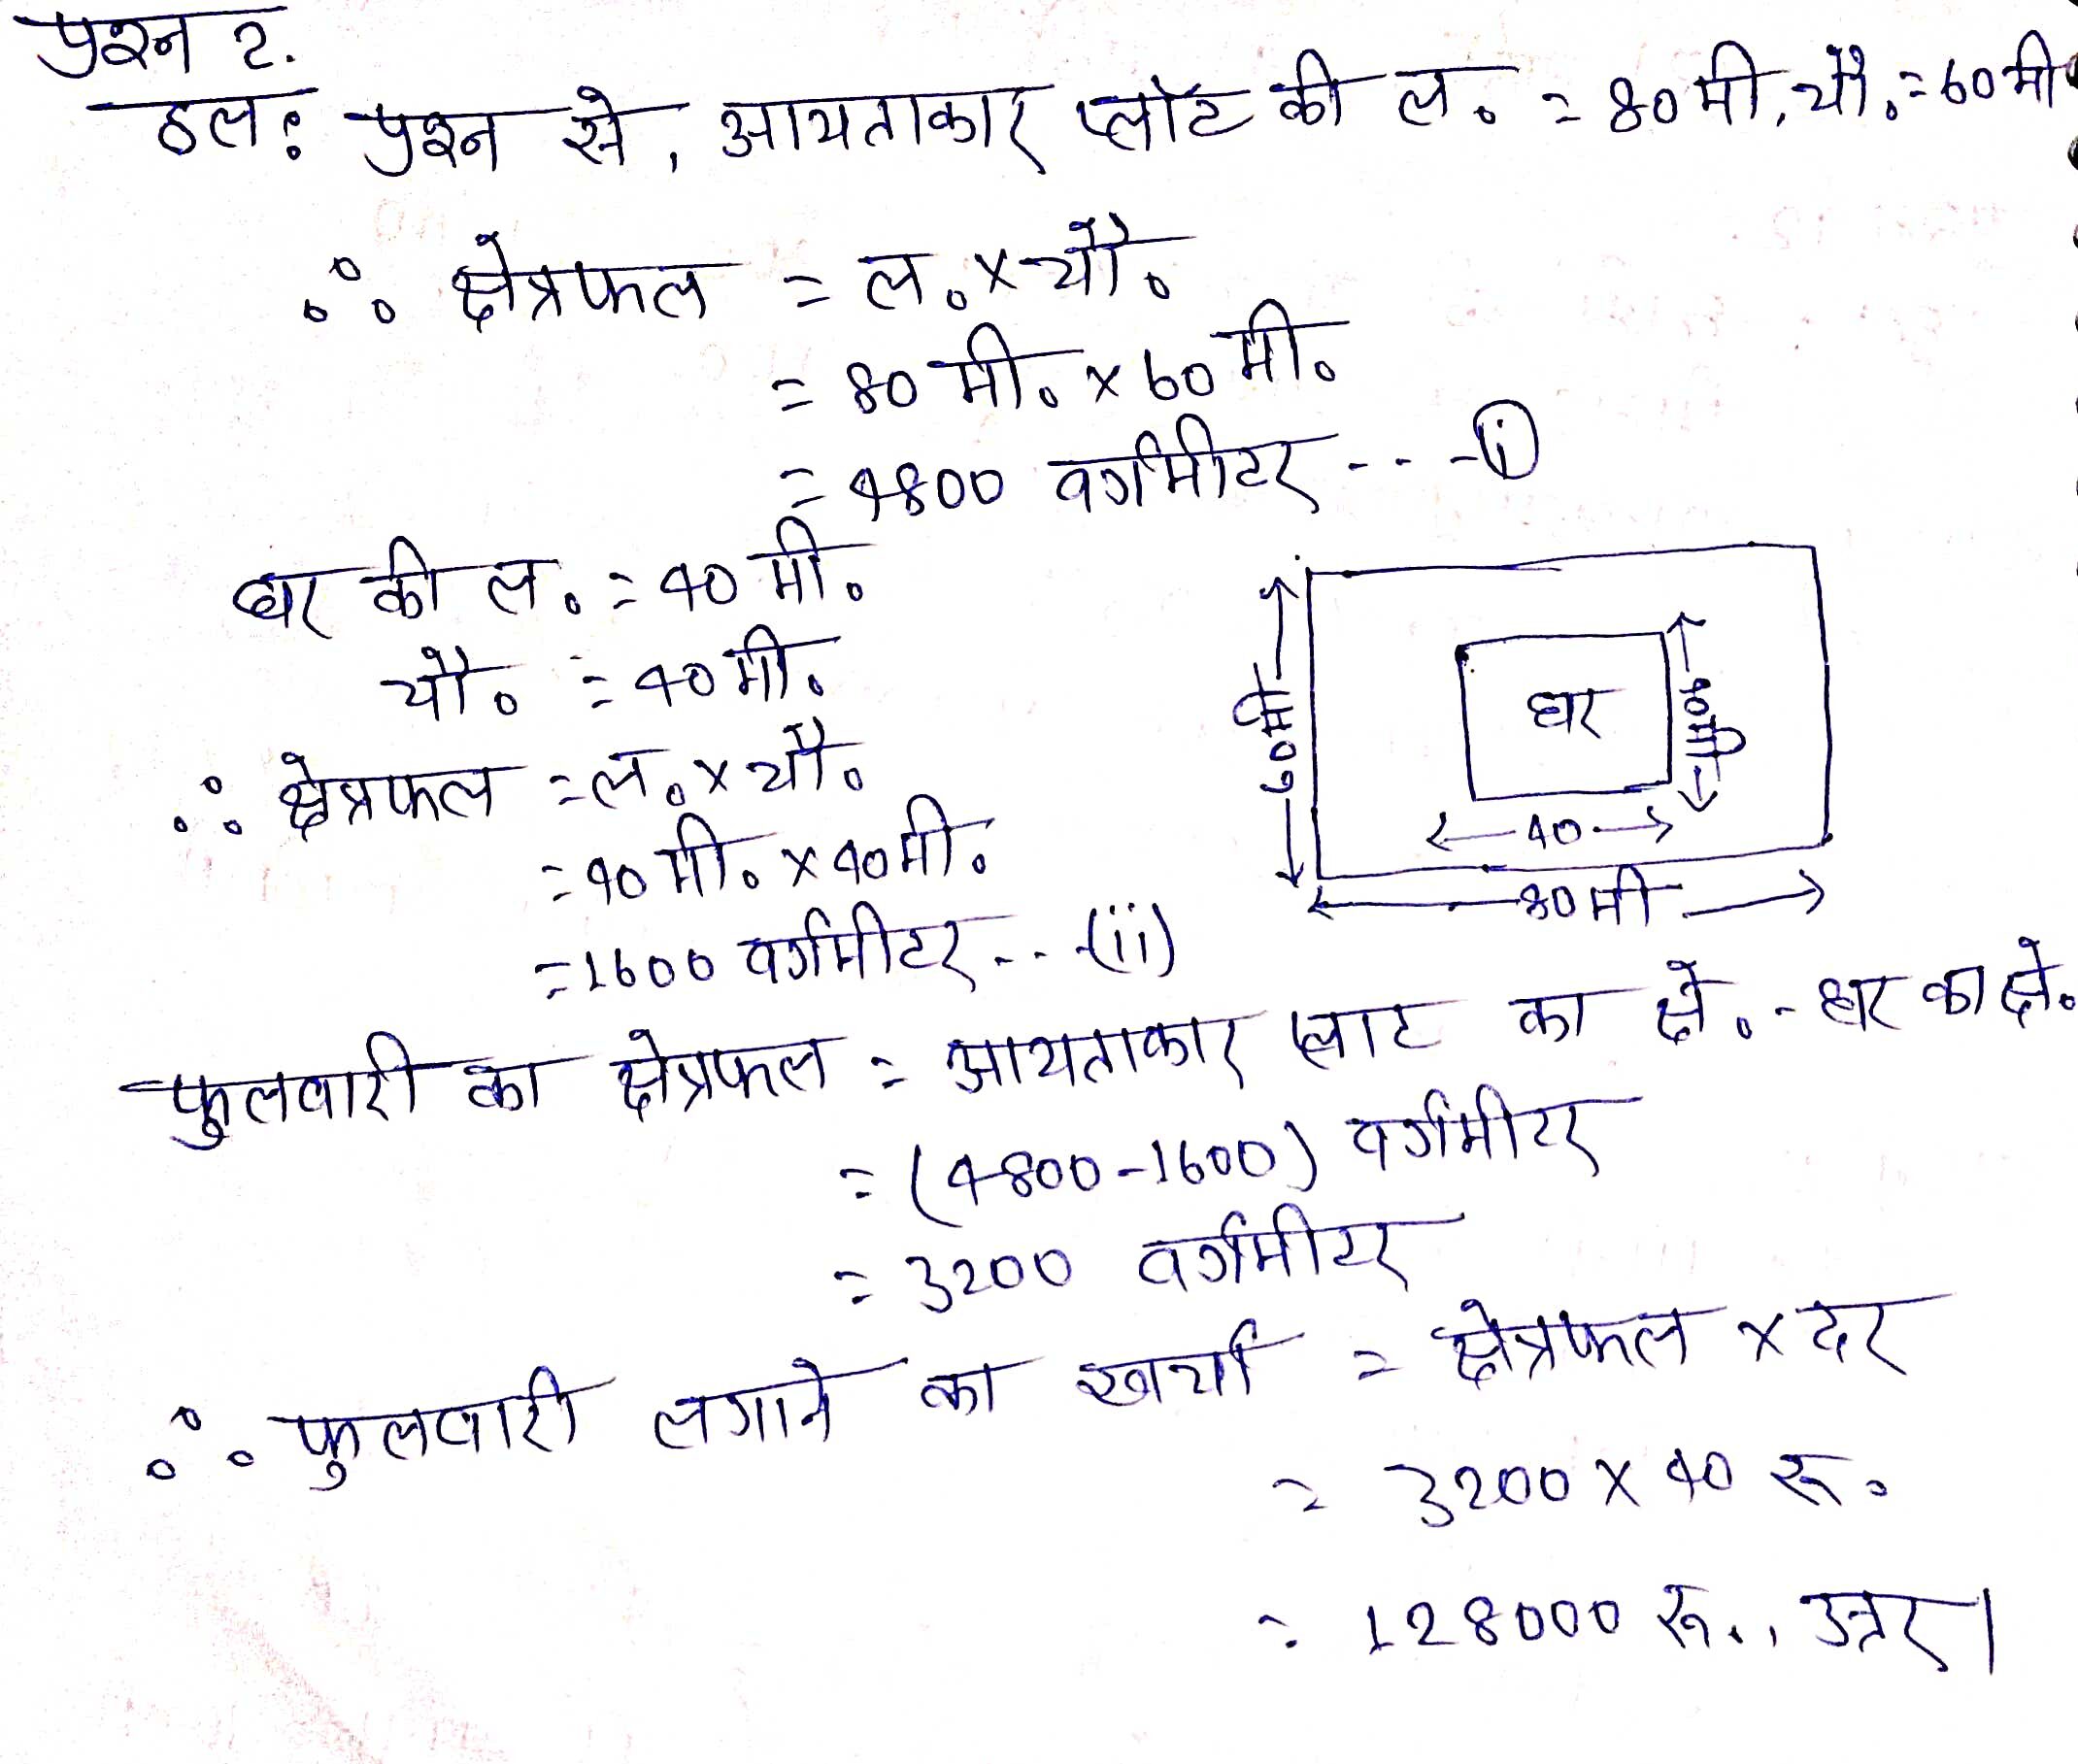 प्रश्न 2.
हल: प्रश्न से, आयताकार प्लॉट की ल. = 80 मी, चौ. = 60 मी
∴ क्षेत्रफल = ल. × चौ.
= 80 मी. × 60 मी.
= 4800 वर्गमीटर - - - (i)
घर की ल. = 40 मी.
चौ. = 40 मी.
∴ क्षेत्रफल = ल. × चौ.
= 40 मी. × 40 मी.
= 1600 वर्गमीटर - - - (ii)
60 मी
घर
40 मी
40
80 मी
फुलवारी का क्षेत्रफल = आयताकार प्लाट का क्षे. - घर का क्षे.
= (4800 - 1600) वर्गमीटर
= 3200 वर्गमीटर
∴ फुलवारी लगाने का खर्चा = क्षेत्रफल × दर
= 3200 × 40 रू.
= 128000 रू., उत्तर।